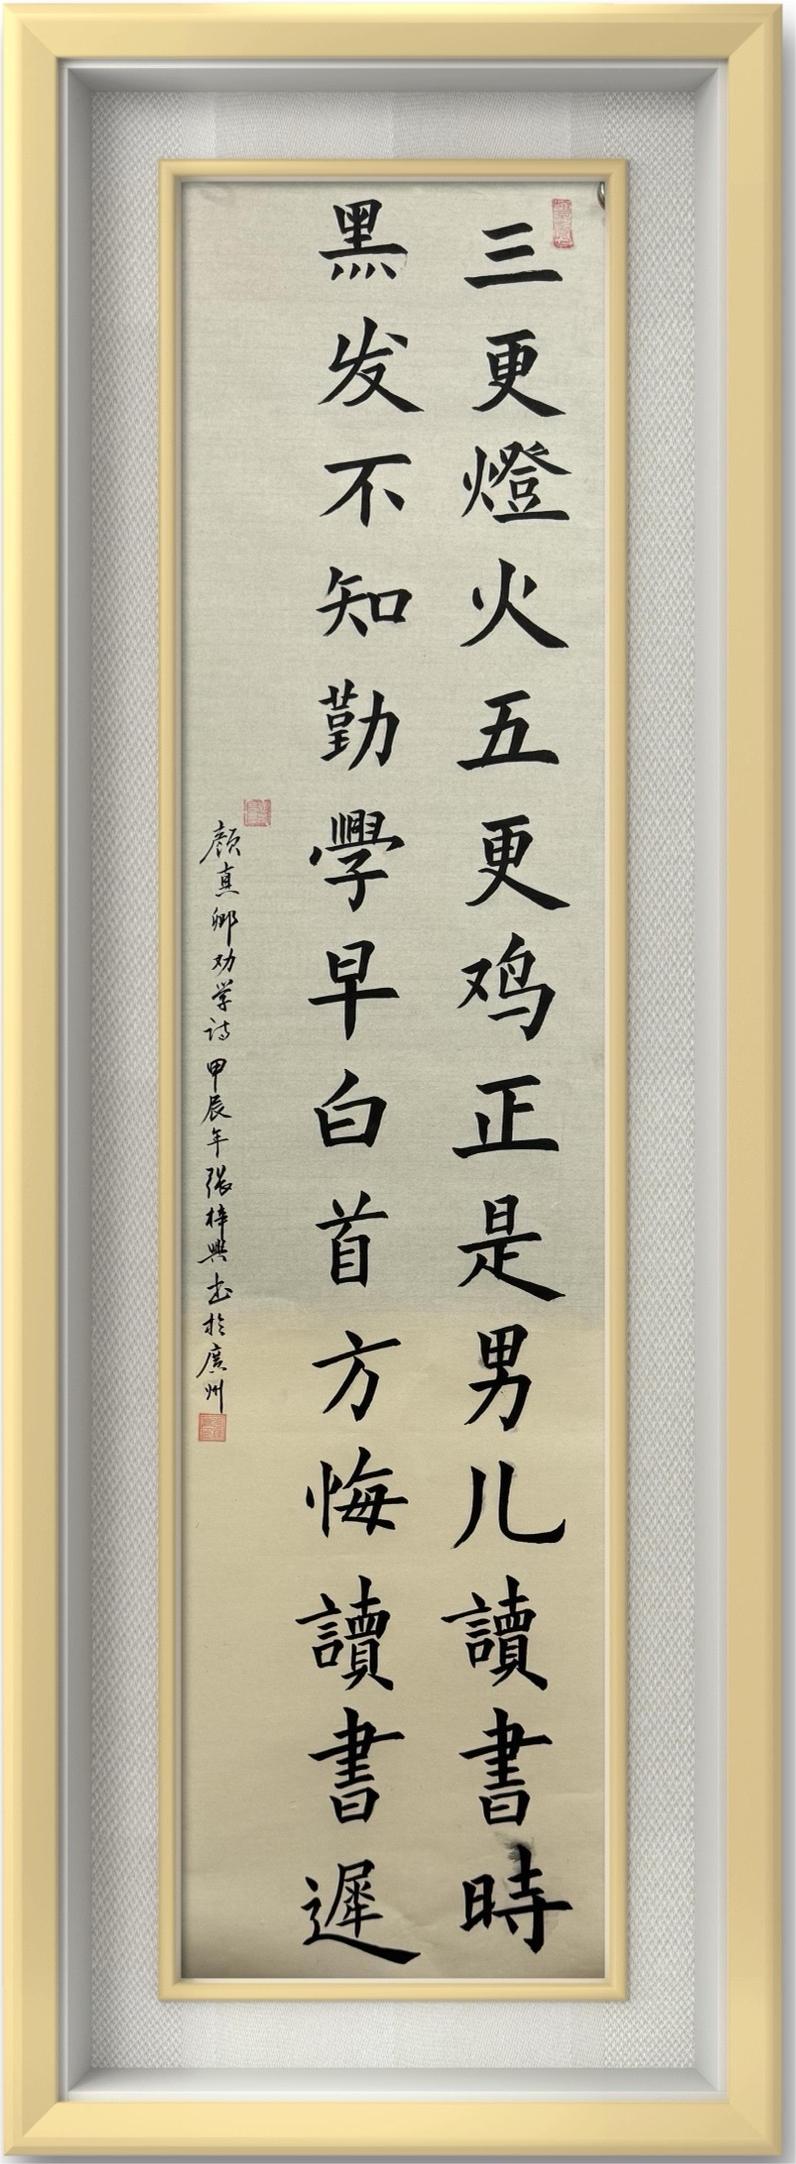 三更燈火五更鸡正是男儿讀書時
黑发不知勤學早白首方悔讀書遲
顔真卿劝学诗甲辰年張梓興书於廣州